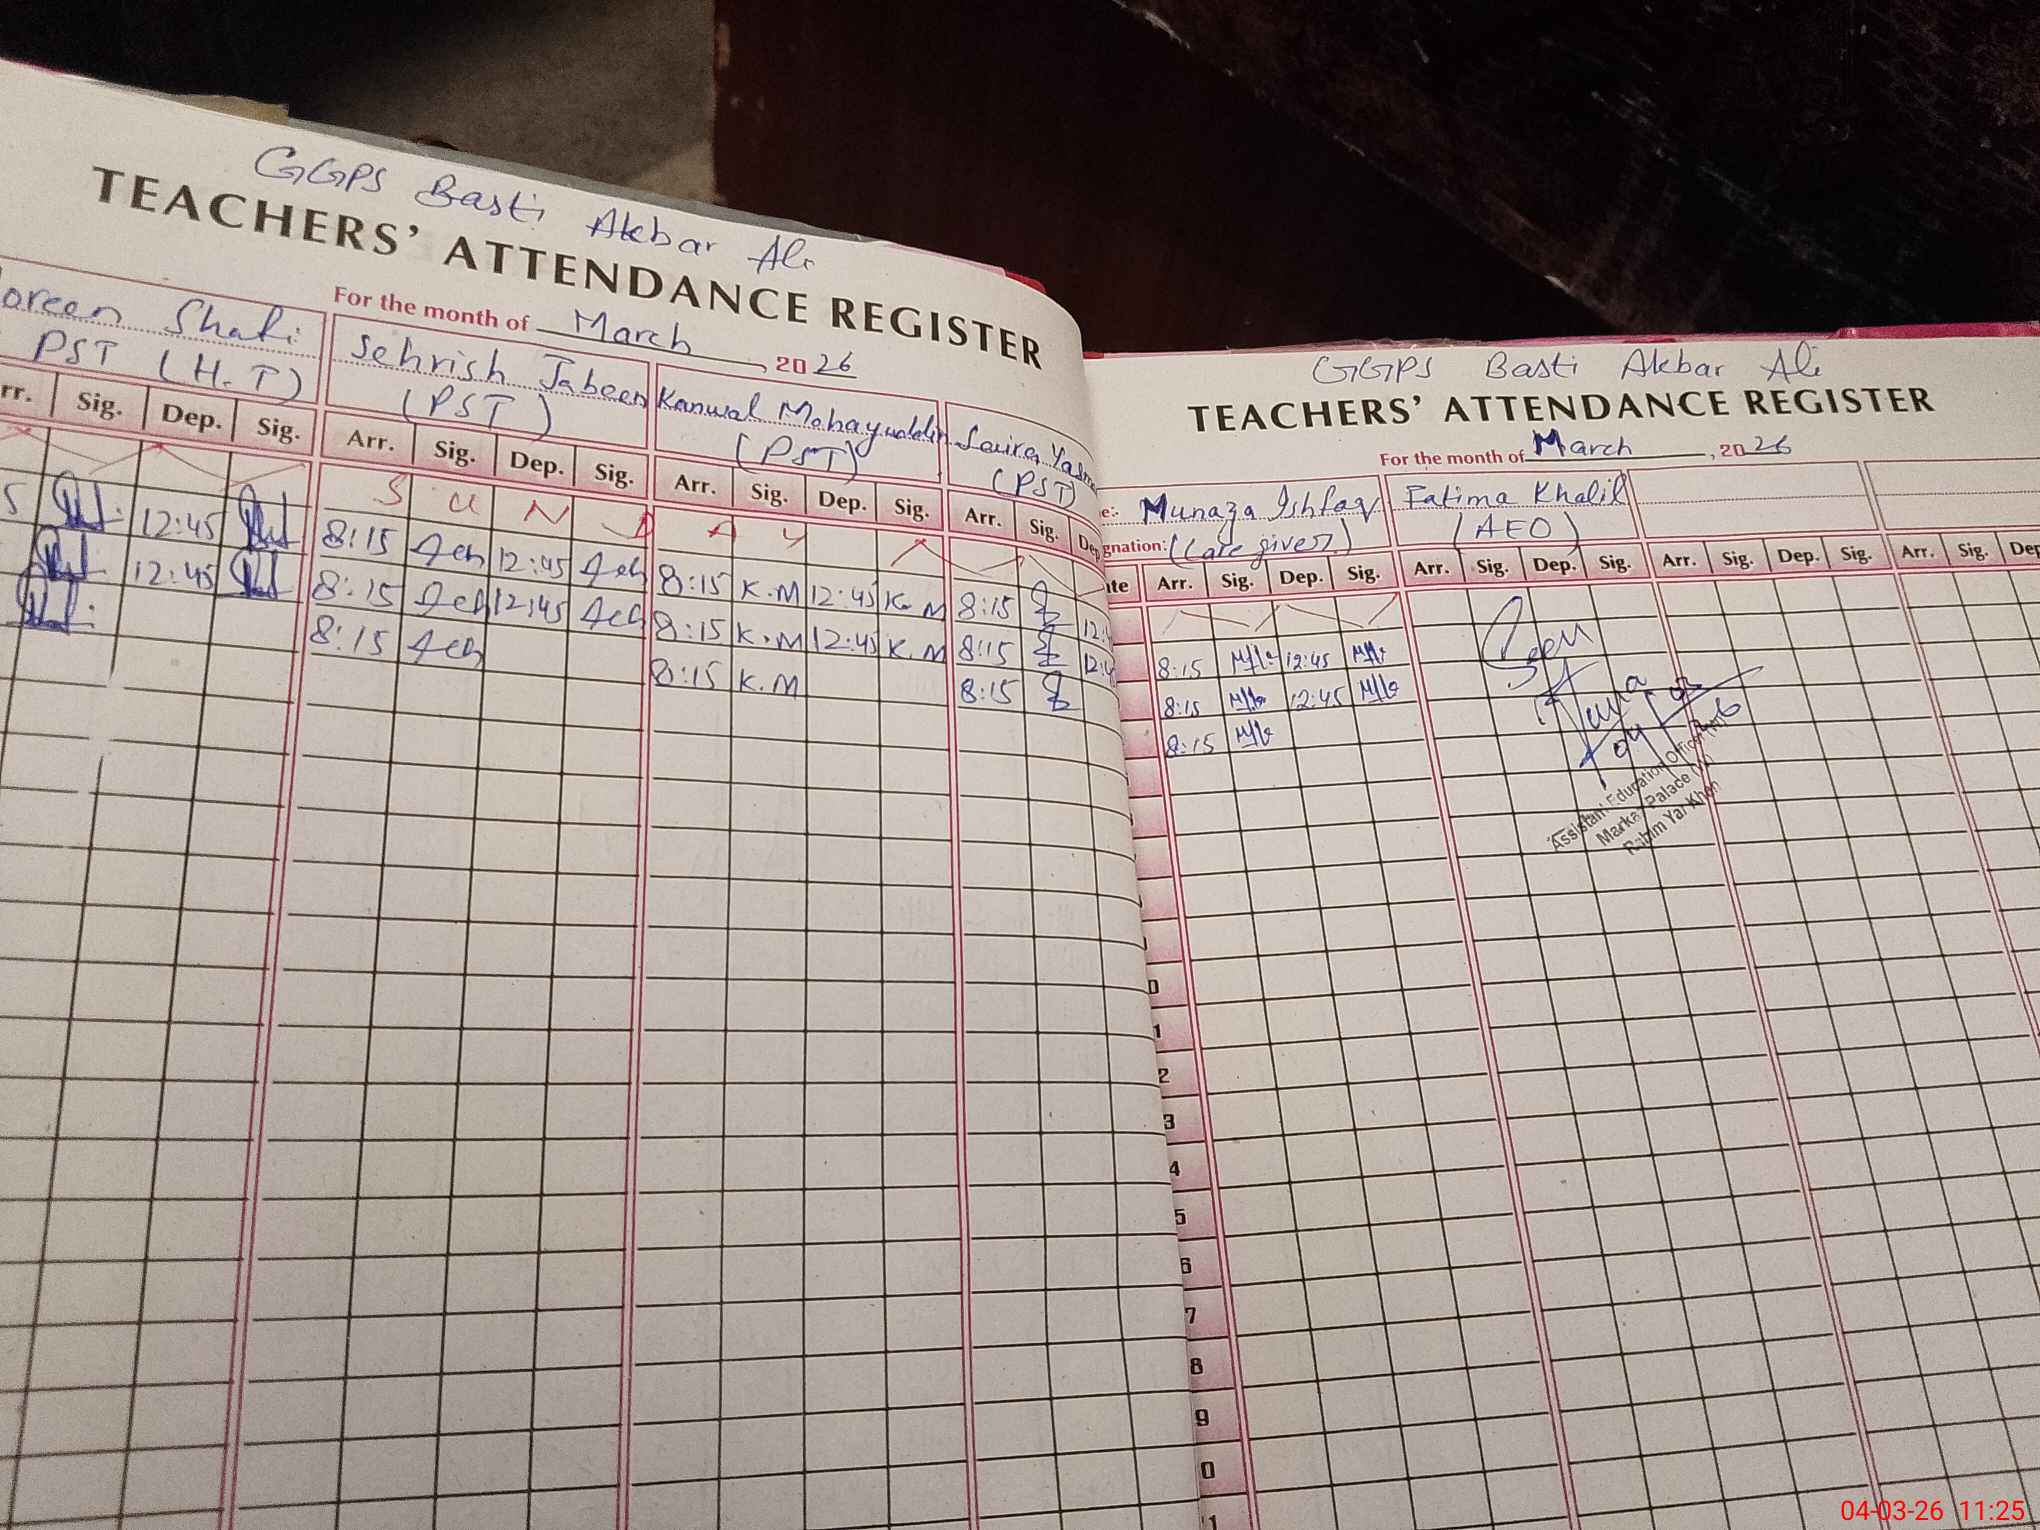 GGPS Basti Akbar Ali
TEACHERS' ATTENDANCE REGISTER
For the month of March, 2026
oreen Shafi
PST (H.T)
Sehrish Jabeen
(PST)
Kanwal Mohayuddin
(PST)
Saira Yasm
(PST)
rr. Sig. Dep. Sig. Arr. Sig. Dep. Sig. Arr. Sig. Dep. Sig. Arr. Sig. Dep
S U N D A Y
5 12:45 8:15 12:45 8:15 K.M 12:45 K.M 8:15 12:4
12:45 8:15 12:45 8:15 K.M 12:45 K.M 8:15 12:4
8:15 8:15 K.M 8:15
GGPS Basti Akbar Ali
TEACHERS' ATTENDANCE REGISTER
For the month of March, 2026
e:- Munaza Ishfaq
gnation: (Care giver)
Fatima Khalil
(AEO)
ate Arr. Sig. Dep. Sig. Arr. Sig. Dep. Sig. Arr. Sig. Dep. Sig. Arr. Sig. Dep
8:15 12:45
8:15 12:45
8:15
Seen
Assistant Education Officer
Markaz Palace
Rahim Yar Khan
0
1
2
3
4
5
6
7
8
9
0
1
04-03-26 11:25